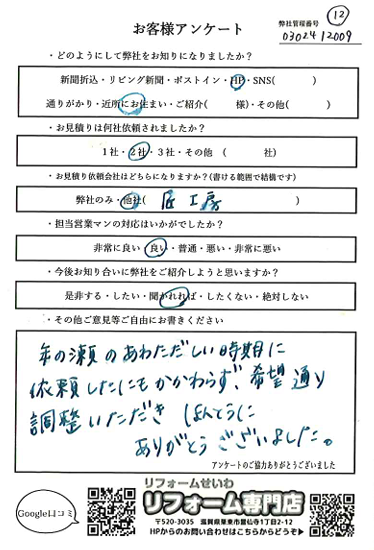 12
お客様アンケート
弊社管理番号
0302412009
・どのようにして弊社をお知りになりましたか？
新聞折込・リビング新聞・ポストイン・HP・SNS( )
通りがかり・近所にお住まい・ご紹介( 様)・その他( )
・お見積りは何社依頼されましたか？
1社・2社・3社・その他 ( 社)
・お見積り依頼会社はどちらになりますか？(書ける範囲で結構です)
弊社のみ・他社( 匠工房 )
・担当営業マンの対応はいかがでしたか？
非常に良い・良い・普通・悪い・非常に悪い
・今後お知り合いに弊社をご紹介しようと思いますか？
是非する・したい・聞かれれば・したくない・絶対しない
・その他ご意見等ご自由にお書きください
年の瀬のあわただしい時期に
依頼したにもかかわらず、希望通り
調整いただき ほんとうに
ありがとうございました。
アンケートのご協力ありがとうございました
Google口コミ
リフォームせいわ
リフォーム専門店
〒520-3035 滋賀県栗東市霊仙寺1丁目2-12
HPからのお問い合わせはこちらからどうぞ▶